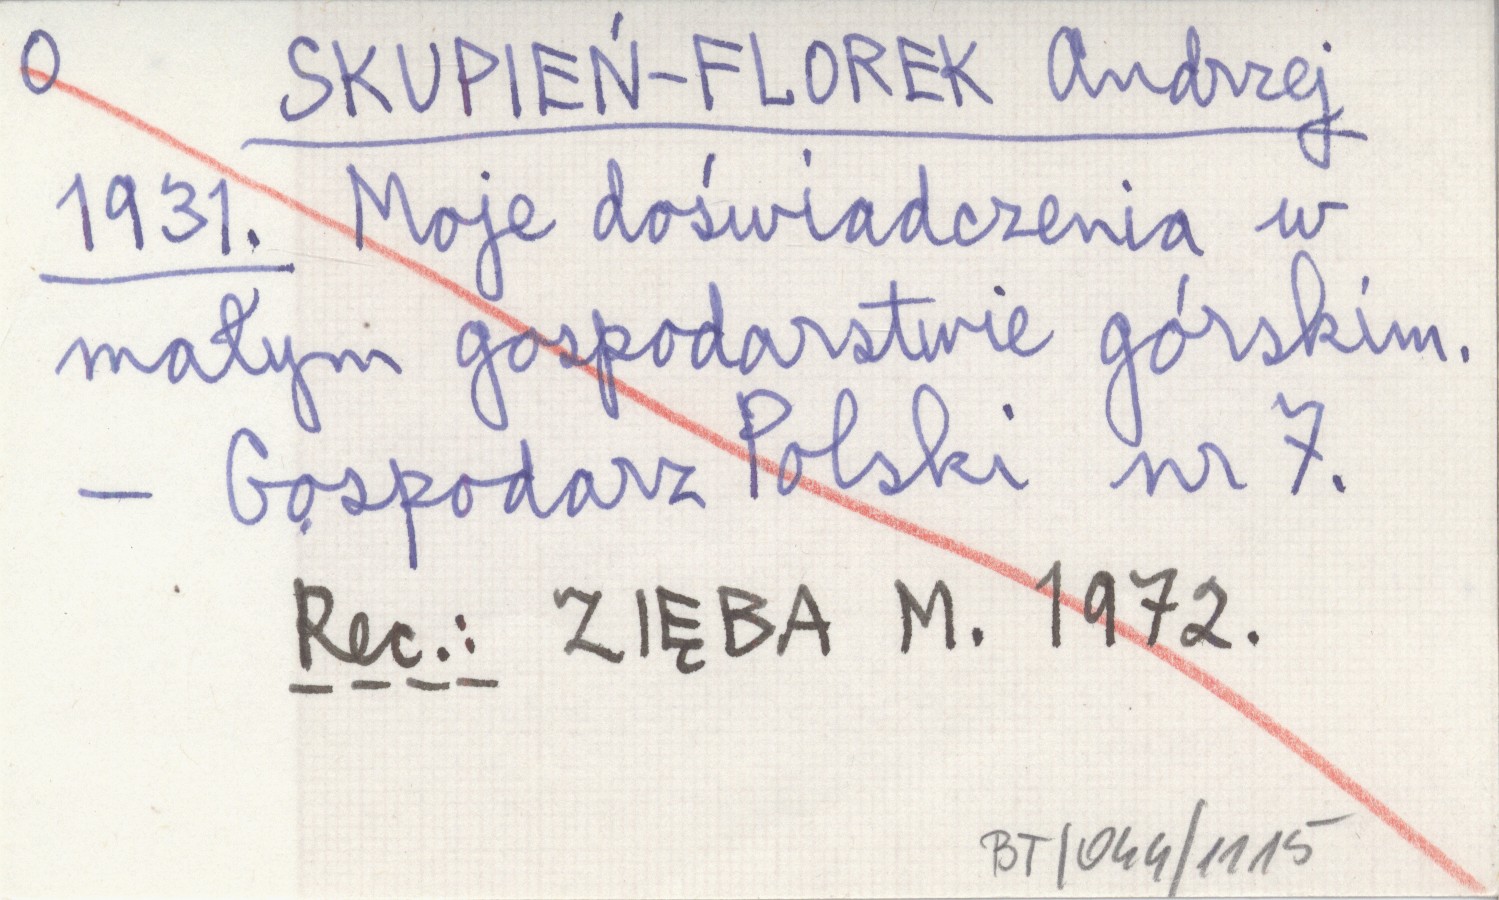 O SKUPIEŃ-FLOREK Andrzej
1931. Moje doświadczenia w
małym gospodarstwie górskim.
— Gospodarz Polski nr 7.
Rec.: ZIĘBA M. 1972.
BT/044/1115